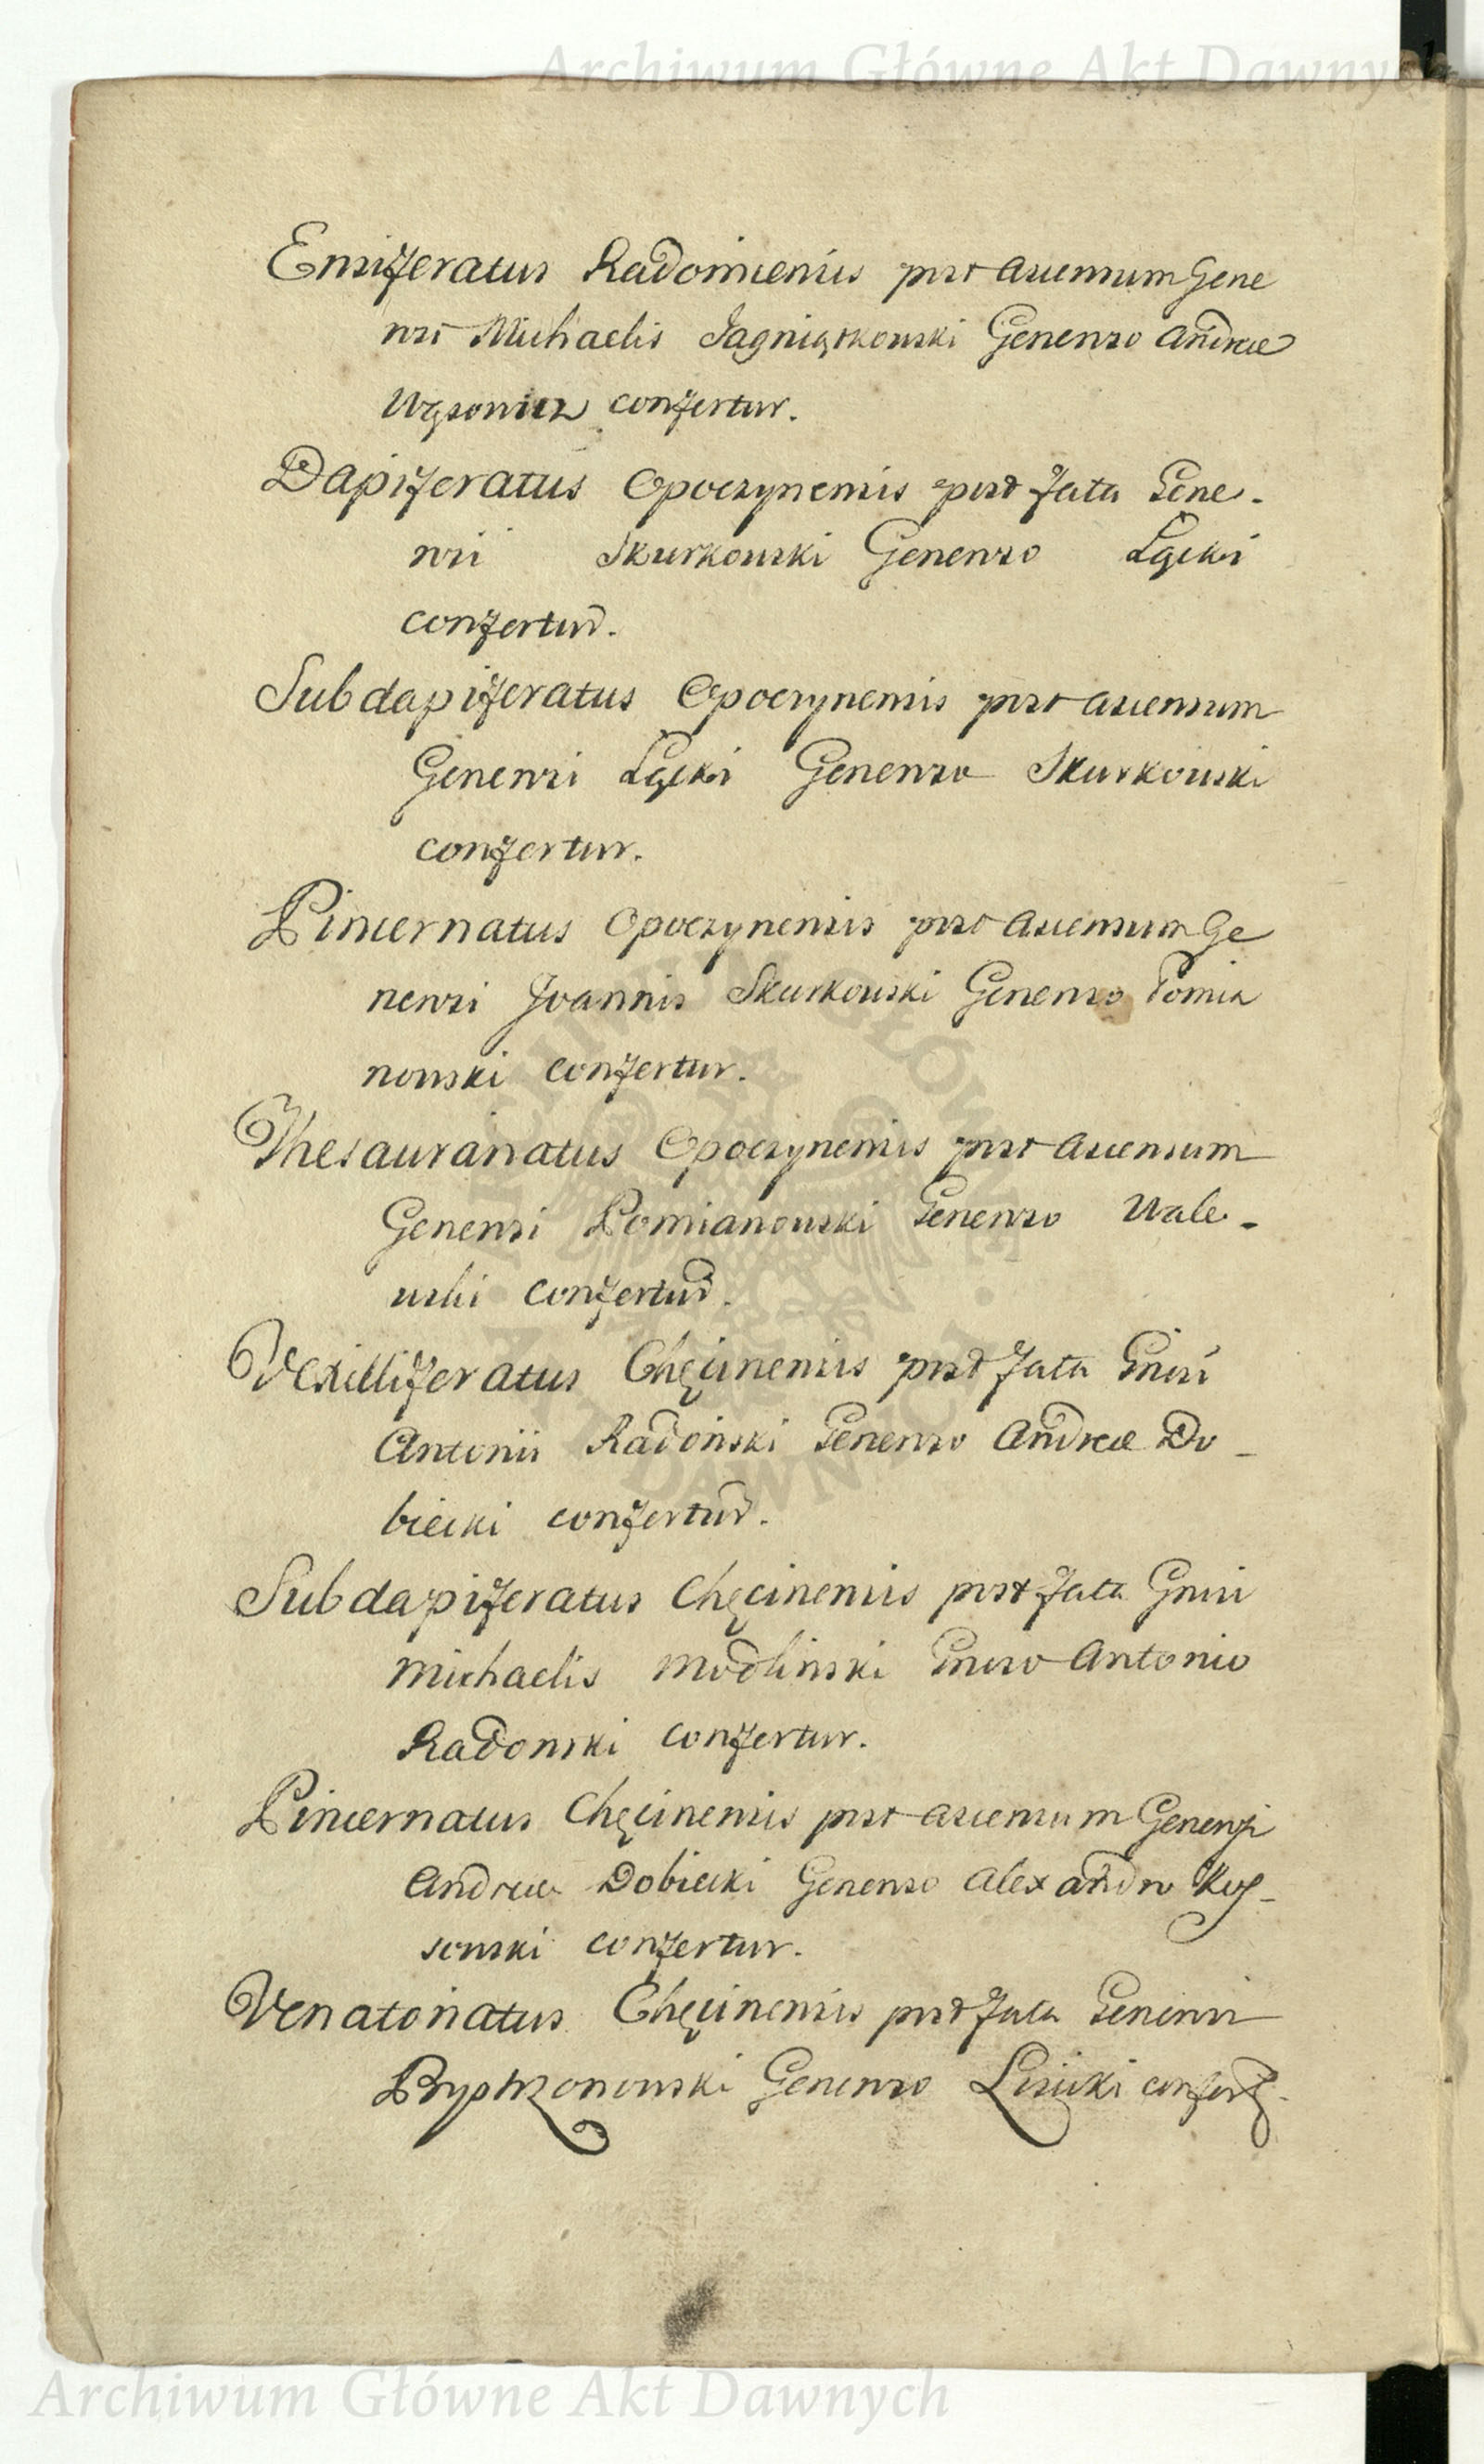 Archiwum Główne Akt Dawnych
Ensiferatus Radomiensis post ascensum Gene
nsi Michaelis Jagniątkowski Generoso Andreæ
Wąsowicz confertur.
Dapiferatus Opocznensis post fata Gene-
rosi Skurkowski Generoso Łącki
confertur.
Subdapiferatus Opocznensis post ascensum
Generosi Łącki Generoso Skurkowski
confertur.
Pincernatus Opocznensis post ascensum Ge
nerosi Joannis Skurkowski Generoso Pomia
nowski confertur.
Thesaurariatus Opocznensis post ascensum
Generosi Pomianowski Generoso Wale-
wski confertur.
Vexilliferatus Chęcinensis post fata Gnisi
Antonii Radoński Generoso Andreæ Do-
biecki confertur.
Subdapiferatus Chęcinensis post fata Gnisi
Michaelis Modlinski Gnoso Antonio
Radonski confertur.
Pincernatus Chęcinensis post ascensum Generosi
Andreæ Dobiecki Generoso Alexandro
sowski confertur.
Venatoriatus Chęcinensis post fata Generosi
Bystrzonowski Generoso Lisicki confert
Archiwum Główne Akt Dawnych